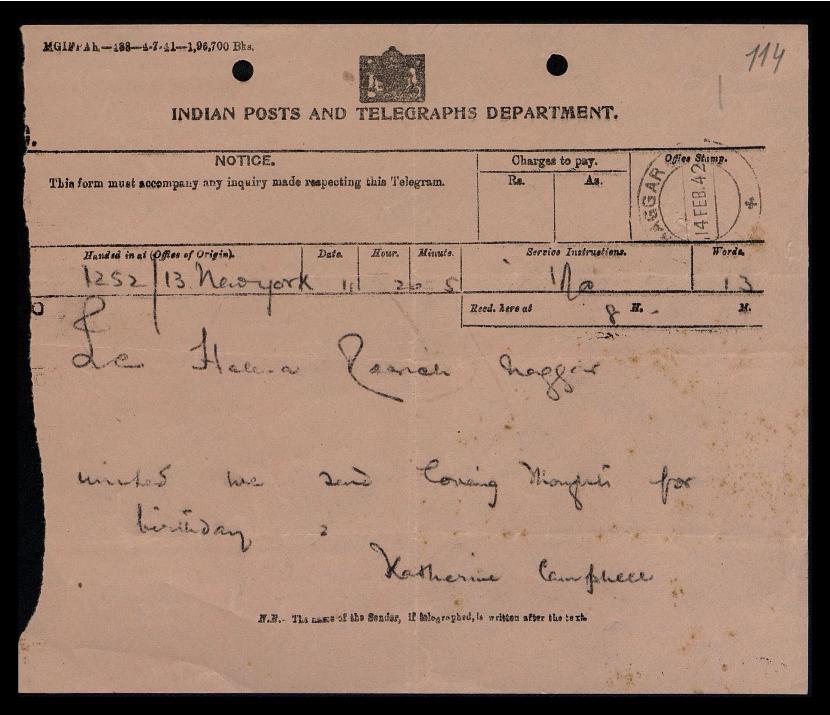 MGIPPAh.—488—4-7-41—1,96,700 Bks.
114
INDIAN POSTS AND TELEGRAPHS DEPARTMENT.
NOTICE.
This form must accompany any inquiry made respecting this Telegram.
Charges to pay.
Rs. As.
Office Stamp.
NAGGAR
14 FEB. 42
Handed in at (Office of Origin). Date. Hour. Minute. Service Instructions. Words.
1252 13 Newyork 11 20 5 13
Recd. here at 8 H. - M.
Helena Roerich Naggar
united we send loving thoughts for
birthday
Katherine Campbell
N.B.- The name of the Sender, if telegraphed, is written after the text.